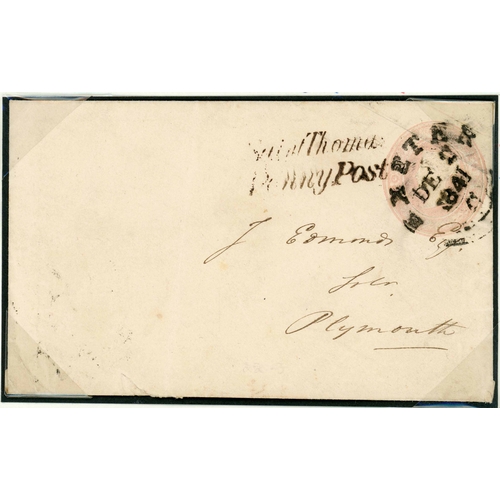 Saint Thomas
Penny Post
EXETER
DE
1841
J Edmonds Esq.
Solr.
Plymouth